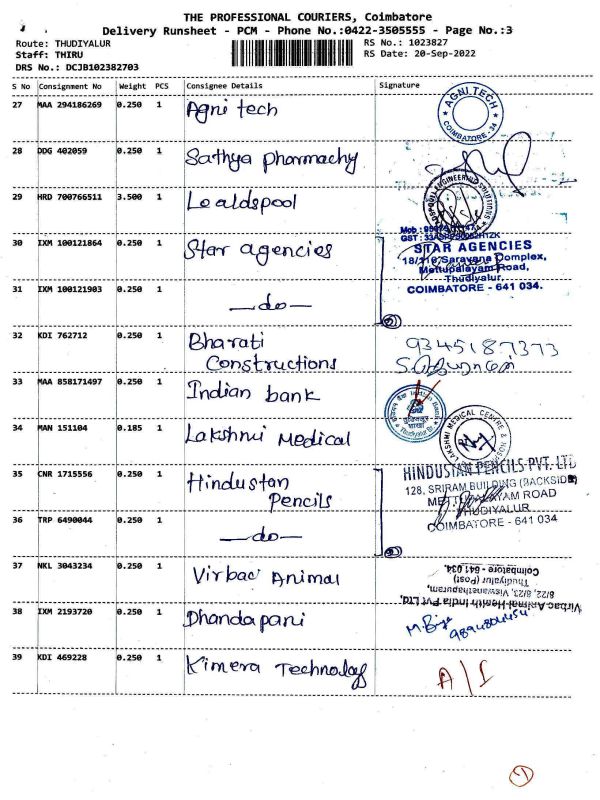 THE PROFESSIONAL COURIERS, Coimbatore
Delivery Runsheet - PCM - Phone No.:0422-3505555 - Page No.:3
Route: THUDIYALUR
RS No.: 1023827
Staff: THIRU
RS Date: 20-Sep-2022
DRS No.: DCJB102382703
S No Consignment No Weight PCS Consignee Details Signature
27 MAA 294186269 0.250 1 Agni tech
AGNI TECH
COIMBATORE-34
28 DDG 402059 0.250 1 Sathya pharmachy
29 HRD 700766511 3.500 1 Loaldspool
ENGINEERING SOLUTIONS
30 IXM 100121864 0.250 1 Star agencies
Mob :
GST :
STAR AGENCIES
18/116 Saravana Complex,
Mettupalayam Road,
Thudiyalur,
COIMBATORE - 641 034.
31 IXM 100121903 0.250 1 —do—
32 KDI 762712 0.250 1 Bharati
Constructions
9345187373
33 MAA 858171497 0.250 1 Indian bank
Indian Bank
34 MAN 151104 0.185 1 Lakshmi Medical
LAKSHMI MEDICAL CENTRE &
35 CNR 1715556 0.250 1 Hindustan
Pencils
HINDUSTAN PENCILS PVT. LTD
128, SRIRAM BUILDING (BACKSIDE)
METTUPALAYAM ROAD
THUDIYALUR
COIMBATORE - 641 034
36 TRP 6490044 0.250 1 —do—
37 NKL 3043234 0.250 1 Virbac Animal
Virbac Animal Health India Pvt Ltd,
8/22, 8/23, Viswanathapuram,
Thudiyalur (Post)
Coimbatore - 641 034.
38 IXM 2193720 0.250 1 Dhandapani
39 KDI 469228 0.250 1 Kimera Technolog
A/I